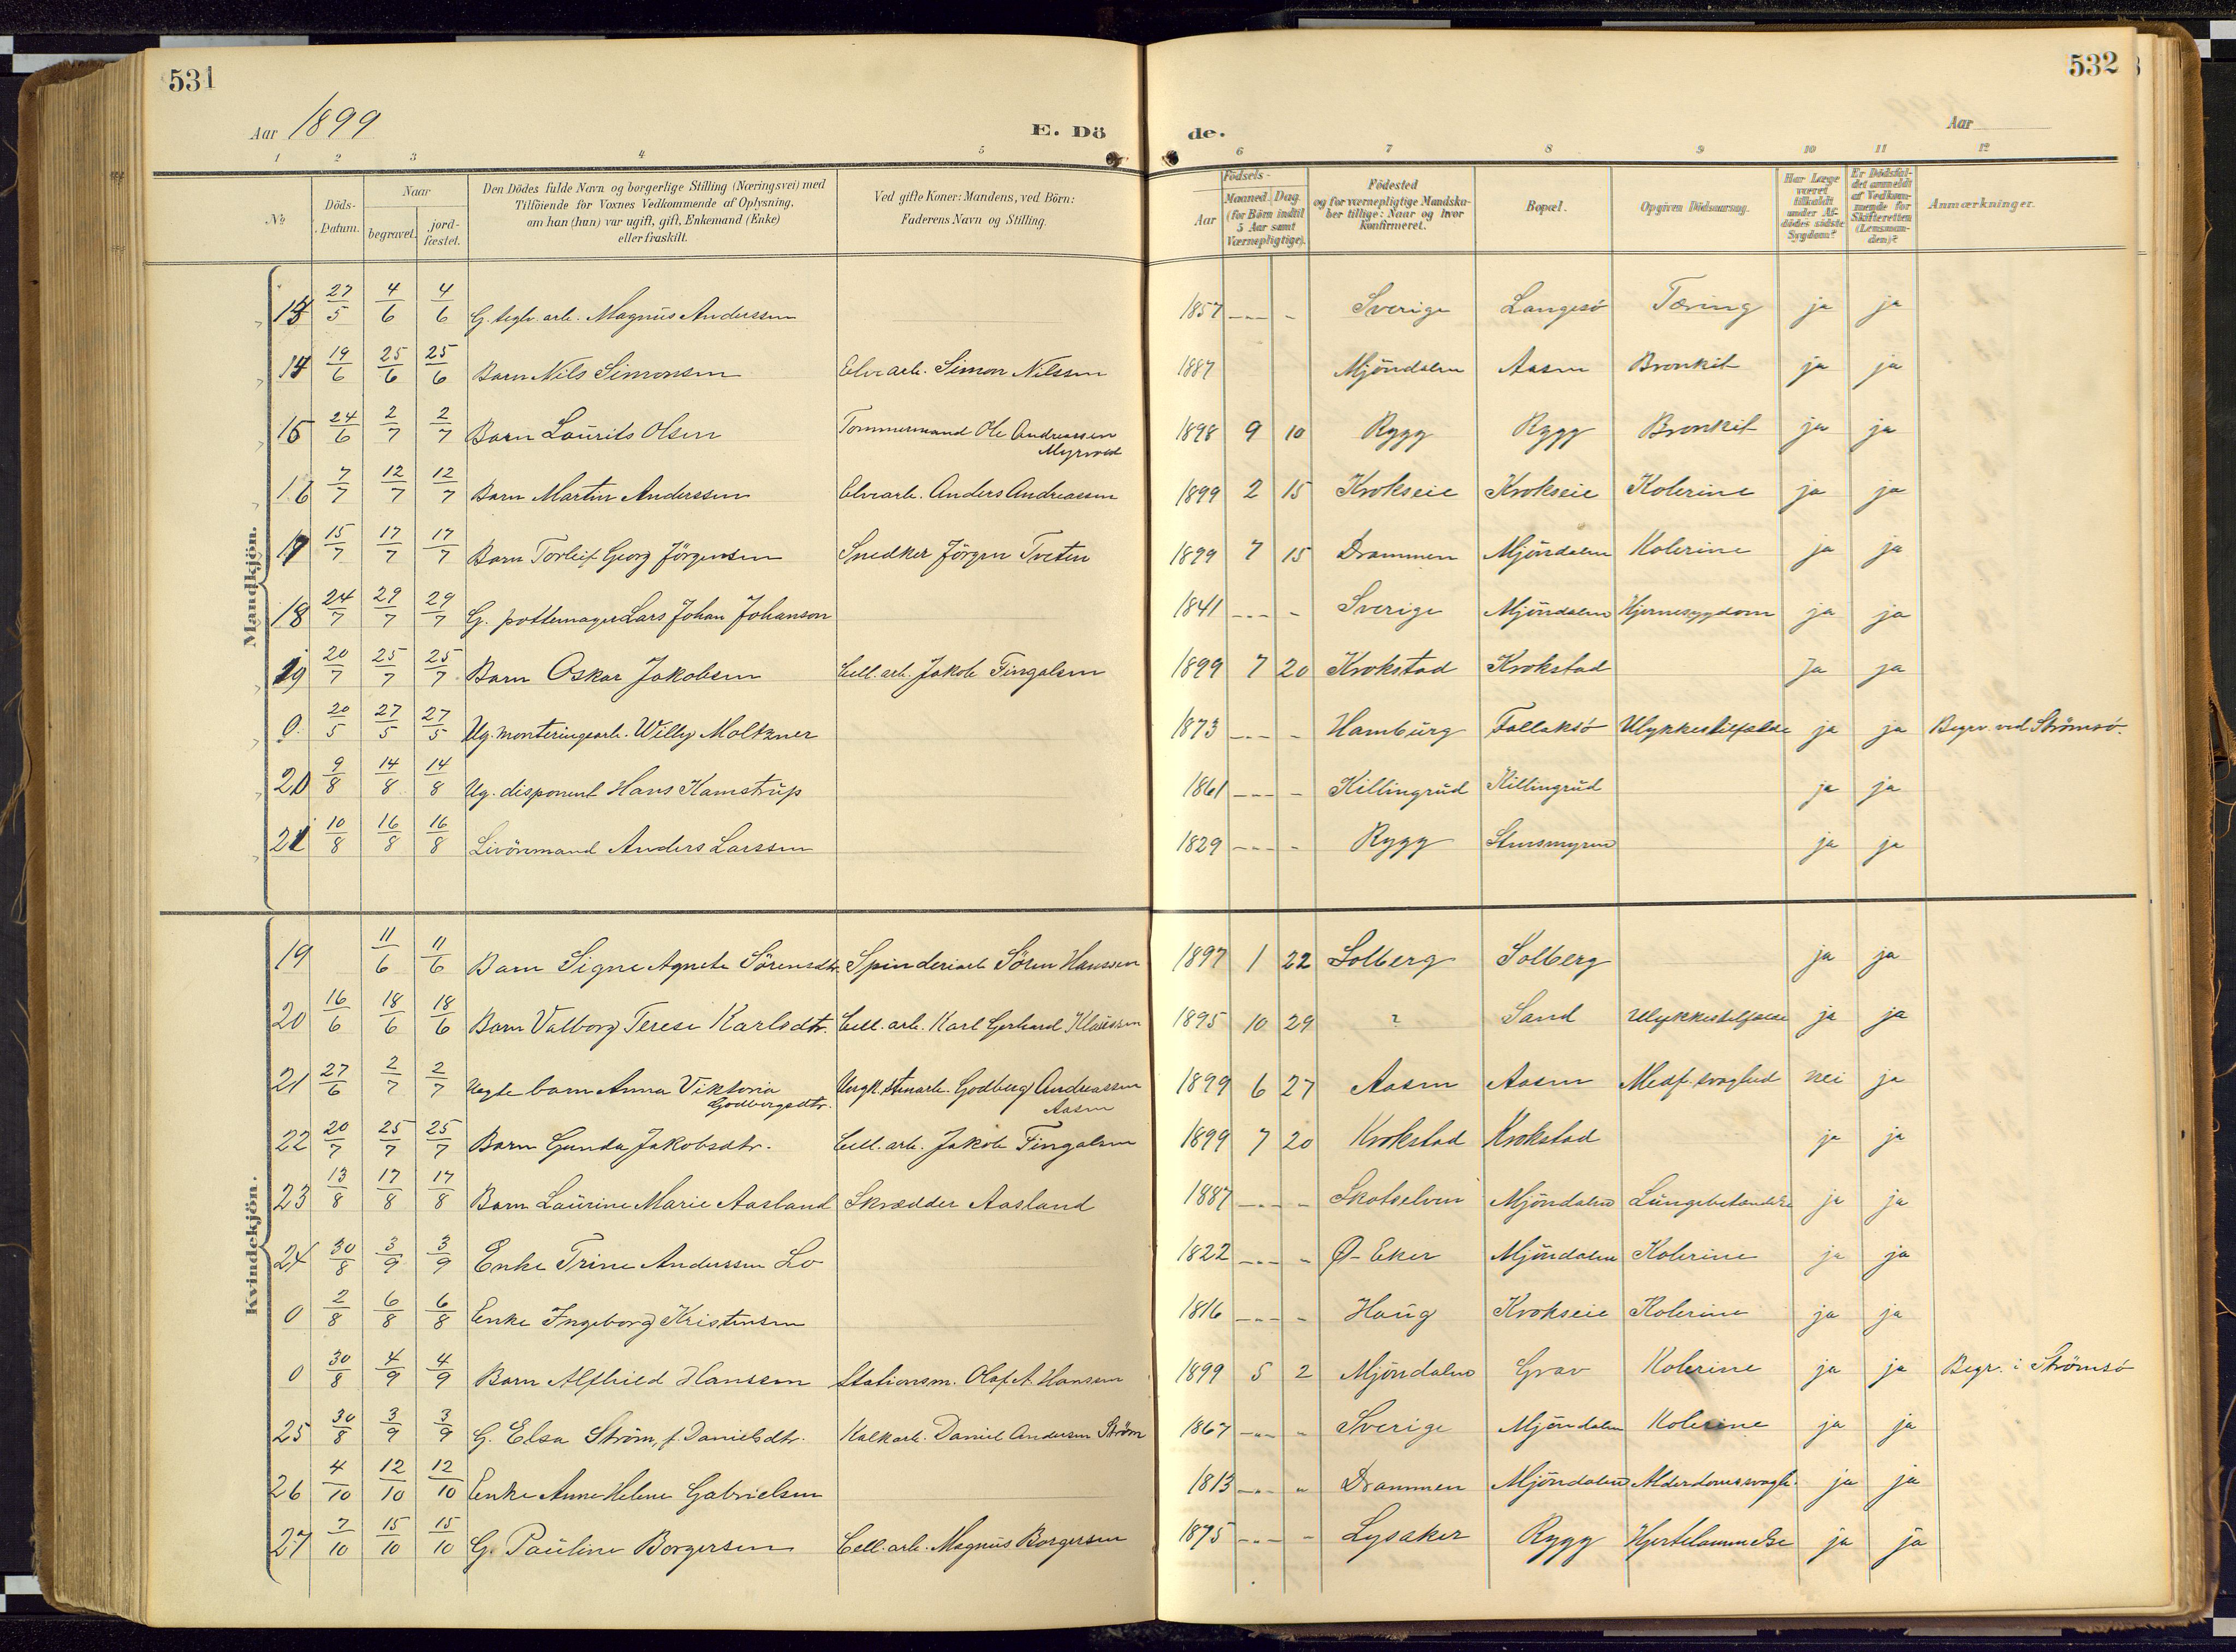 531
532
Aar 1899
E. Dö
de.
Aar
1 2 3 4 5 6 7 8 9 10 11 12
No
Döds-Datum.
Naar
begravet.
jord-fæstet.
Den Dödes fulde Navn og borgerlige Stilling (Næringsvei) med
Tilföiende for Voxnes Vedkommende af Oplysning,
om han (hun) var ugift, gift, Enkemand (Enke)
eller fraskilt.
Ved gifte Koner: Mandens, ved Börn:
Faderens Navn og Stilling.
Födsels-
Aar
Maaned. Dag.
(for Börn indtil
5 Aar samt
Værnepligtige).
Födested
og for værnepligtige Mandska-
ber tillige: Naar og hvor
Konfirmeret.
Bopæl.
Opgiven Dödsaarsag.
Har Læge
været
tilkaldt
under Af-
dödes sidste
Sygdom?
Er Dödsfal-
det anmeldt
af Vedkom-
mende for
Skifteretten
(Lensman-
den)?
Anmærkninger.
Mandkjön.
13 27/5 4/6 4/6 G. teglv. arb. Magnus Anderssen 1857 --- - Sverige Langesö Tæring ja ja
14 19/6 25/6 25/6 Barn Nils Simonsen Elvearb. Simon Nilssen 1887 Mjöndalen Aasen Bronkit ja ja
15 24/6 2/7 2/7 Barn Laurits Olsen Tømmermand Ole Andreassen 1898 9 10 Rygg Rygg Bronkit ja ja
Myrvold
16 7/7 12/7 12/7 Barn Martin Anderssen Elvearb. Anders Andreassen 1899 2 15 Krokseie Krokseie Kolerine ja ja
17 15/7 17/7 17/7 Barn Torleif Georg Jörgensen Snedker Jörgen Tveten 1899 7 15 Drammen Mjöndalen Kolerine ja ja
18 24/7 29/7 29/7 G. pottemager Lars Johan Johanson 1841 --- - Sverige Mjöndalen Hjernesygdom ja ja
19 20/7 25/7 25/7 Barn Oskar Jakobsen Cell. arb. Jakob Fingalsen 1899 7 20 Krokstad Krokstad Ja ja
0. 20/5 27/5 27/5 Ug. monteringsarb. Willy Moltzner 1873 --- - Hamburg Follaksö Ulykkestilfælde ja ja Begrv. ved Strömsö.
20 9/8 14/8 14/8 Ug. disponent Hans Kamstrup 1861 --- - Killingrud Killingrud ja ja
21 10/8 16/8 16/8 Livörmand Anders Larssen 1829 --- - Rygg Stensmyren ja ja
Kvindekjön.
19 11/6 11/6 Barn Signe Agnete Sörensdtr. Spinderiarb Sören Hanssen 1897 1 22 Solberg Solberg ja ja
20 16/6 18/6 18/6 Barn Valborg Terese Karlsdtr. Cell. arb. Karl Gerhard Klaussen 1895 10 29 ? Sand Ulykkestilfælde ja ja
21 27/6 2/7 2/7 Uegte barn Anna Viktoria Ungk. stenarb. Godberg Andreassen 1899 6 27 Aasen Aasen Medf. svaghed nei ja
Godbergsdtr. Aasen
22 20/7 25/7 25/7 Barn Gunda Jakobsdtr. Cell. arb. Jakob Fingalsen 1899 7 20 Krokstad Krokstad ja ja
23 13/8 17/8 17/8 Barn Laurine Marie Aasland Skrædder Aasland 1887 --- - Skotselven Mjöndalen Lungebetændelse ja ja
24 30/8 3/9 3/9 Enke Trine Anderssen Lo 1822 --- - Ø-Eker Mjöndalen Kolerine ja ja
0 2/8 6/8 6/8 Enke Ingeborg Kristensen 1816 --- - Haug Krokseie Kolerine ja ja
0 30/8 4/9 4/9 Barn Alfhild Hansem Stationsm. Olaf A. Hansen 1899 5 2 Mjöndalen Grav Kolerine ja ja Begr. i Strömsö
25 30/8 3/9 3/9 G. Elsa Ström, f. Danielsdtr. Kalkarb. Daniel Andersen Ström 1867 --- - Sverige Mjöndalen Kolerine ja ja
26 4/10 12/10 12/10 Enke Anne Helene Gabrielsen 1813 --- - Drammen Mjöndalen Alderdomssvagh. ja ja
27 7/10 15/10 15/10 G. Pauline Borgersen Cell. arb. Magnus Borgersen 1875 --- - Lysaker Rygg Hjertelammelse ja ja